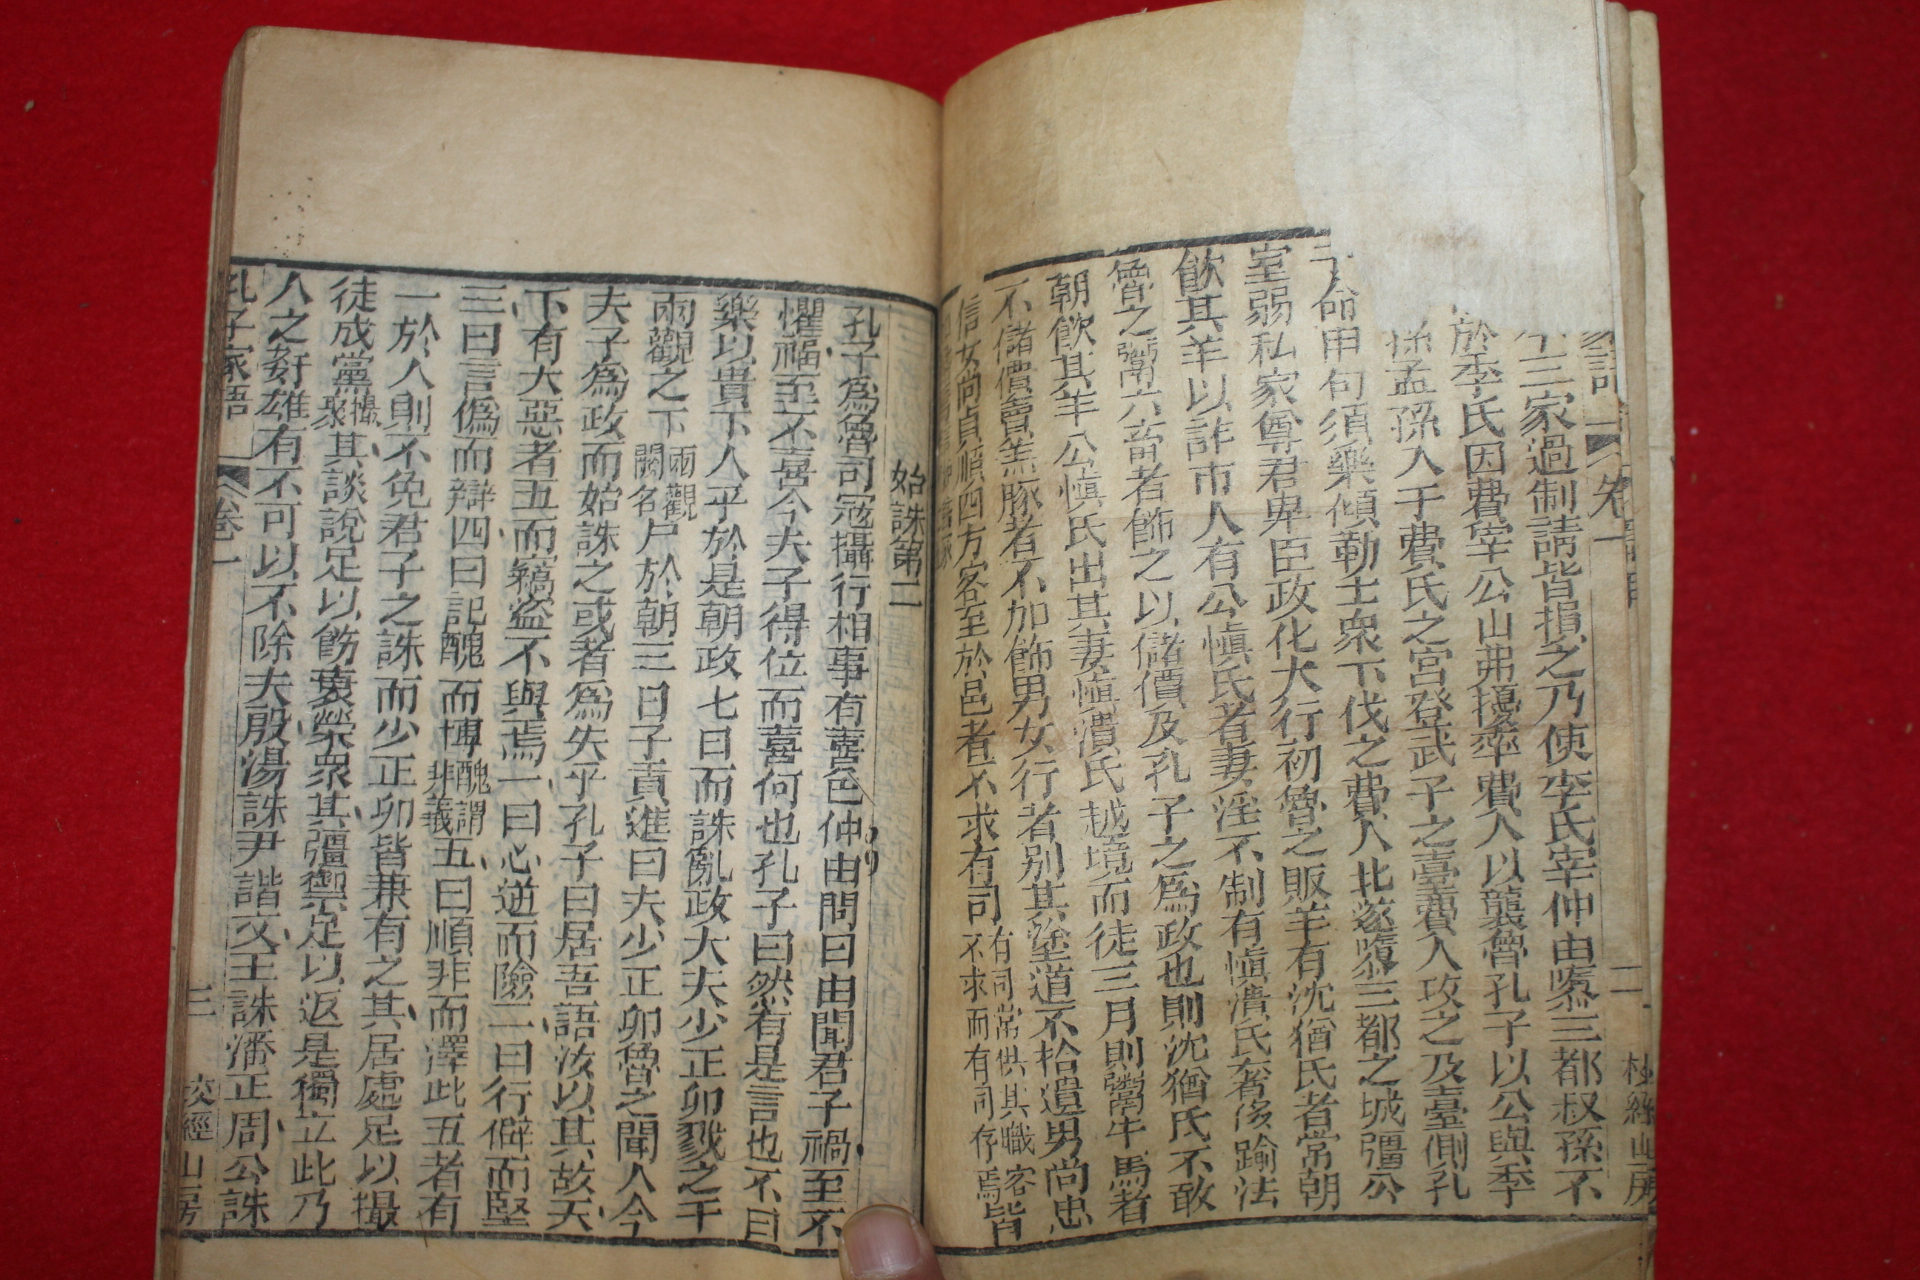 語 卷一 二 校經山房
三家過制請皆損之乃使李氏宰仲由隳三都叔孫不
於季氏因費宰公山弗擾率費人以襲魯孔子以公與季
孫孟孫入于費氏之宮登武子之臺費人攻之及臺側孔
子命申句須樂傾勒士衆下伐之費人北遂隳三都之城彊公
室弱私家尊君卑臣政化大行初魯之販羊有沈猶氏者常朝
飮其羊以詐市人有公愼氏者妻淫不制有愼潰氏奢侈踰法
魯之鬻六畜者飾之以儲價及孔子之爲政也則沈猶氏不敢
朝飮其羊公愼氏出其妻愼潰氏越境而徒三月則鬻牛馬者
不儲價賣羔豚者不加飾男女行者别其塗道不拾遺男尚忠
信女尚貞順四方客至於邑者不求有司有司常供其職客不求而有司存焉皆
始誅第二
孔子爲魯司寇攝行相事有喜色仲由問曰由聞君子禍至不
懼福至不喜今夫子得位而喜何也孔子曰然有是言也不曰
樂以貴下人乎於是朝政七日而誅亂政大夫少正卯戮之于
兩觀之下兩觀闕名尸於朝三日子貢進曰夫少正卯魯之聞人今
夫子爲政而始誅之或者爲失乎孔子曰居吾語汝以其故天
下有大惡者五而竊盜不與焉一曰心逆而險二曰行僻而堅
三曰言僞而辯四曰記醜而博醜謂非義五曰順非而澤此五者有
一於人則不免君子之誅而少正卯皆兼有之其居處足以撮
徒成黨撮聚其談說足以飾襃榮衆其彊禦足以返是獨立此乃
人之姦雄有不可以不除夫殷湯誅尹諧文王誅潘正周公誅
孔子家語 卷一 三 校經山房